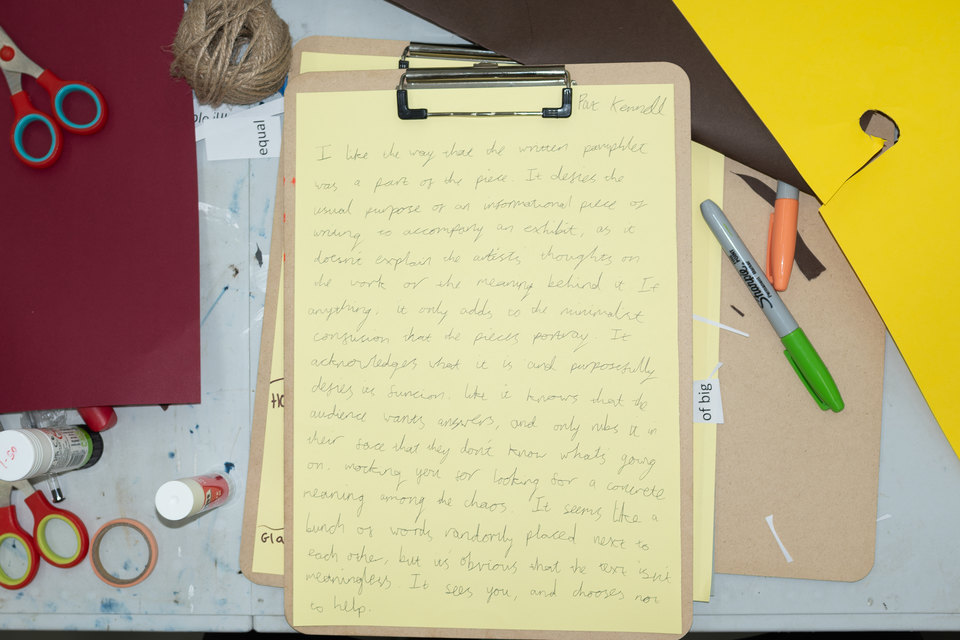 Pat Kennell
I like the way that the written pamphlet
was a part of the piece. It defies the
usual purpose of an informational piece of
writing to accompany an exhibit, as it
doesn't explain the artists thoughts on
the work or the meaning behind it If
anything, it only adds to the minimalist
confusion that the pieces portray. It
acknowledges what it is and purposefully
defies its funcion. like it knows that the
audience wants answers, and only rubs it in
their face that they don't know whats going
on. mocking you for looking for a concrete
meaning among the chaos. It seems like a
bunch of words randomly placed next to
each other, but its obvious that the text isn't
meaningless. It sees you, and chooses not
to help.
equal
of big
Sharpie
Gla
HO